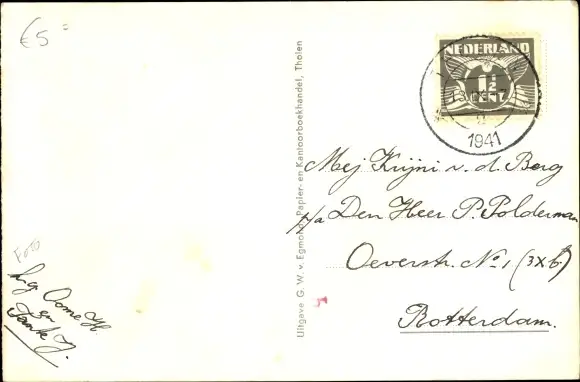 €5 =
NEDERLAND
1½
CENT
1941
Mej Krijni v. d. Berg
p/a Den Heer P. Polderman
Oeverstr. No. 1 (3x b.)
Rotterdam.
Uitgave G. W. v. Egmond, Papier- en Kantoorboekhandel, Tholen
Foto
h.g. Oome H
en
Tante J.
5